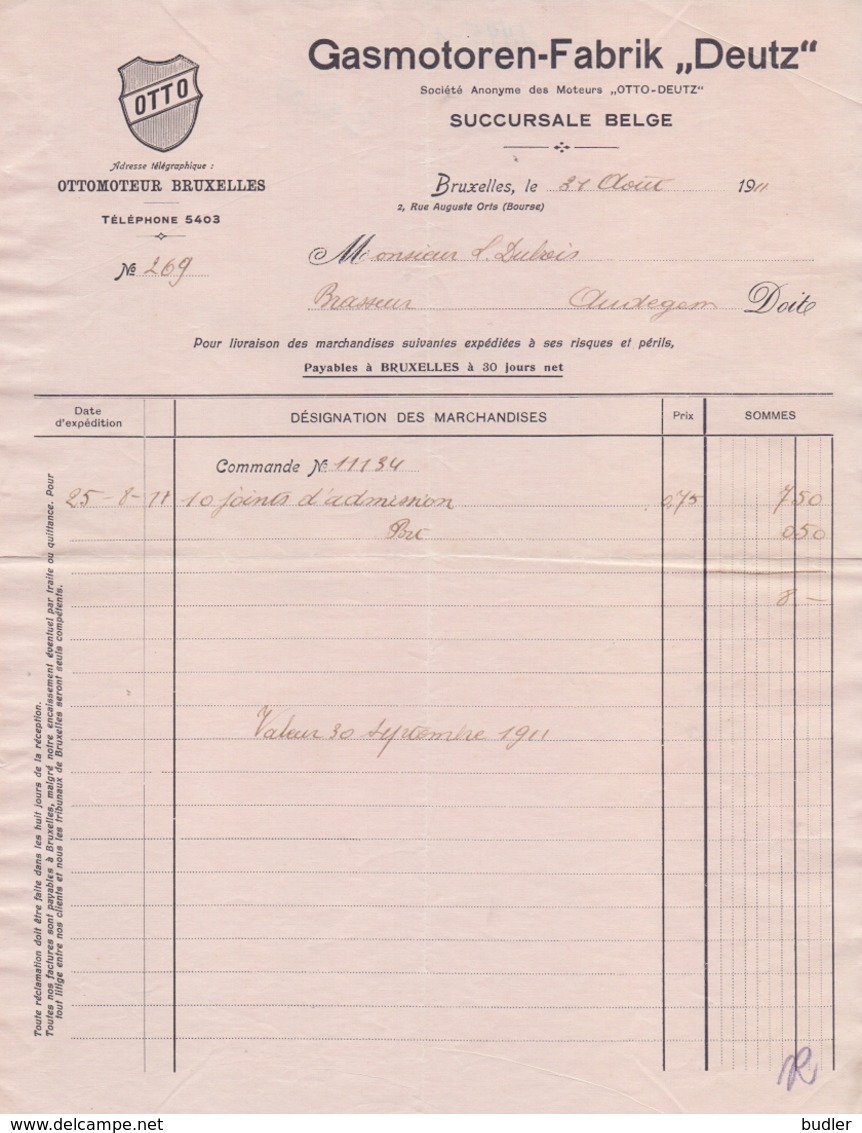 Gasmotoren-Fabrik „Deutz“
Société Anonyme des Moteurs „OTTO-DEUTZ“
SUCCURSALE BELGE
OTTO
Adresse télégraphique :
OTTOMOTEUR BRUXELLES
TÉLÉPHONE 5403
№ 269
Bruxelles, le 31 Août 1911
2, Rue Auguste Orts (Bourse)
Monsieur L. Dubois
Brasseur Audegem Doit
Pour livraison des marchandises suivantes expédiées à ses risques et périls,
Payables à BRUXELLES à 30 jours net
Date d'expédition DÉSIGNATION DES MARCHANDISES Prix SOMMES
Commande № 11134
25-8-11 10 joints d'admission 0,75 7 50
0 50
8 -
Valeur 30 septembre 1911
Toute réclamation doit être faite dans les huit jours de la réception.
Toutes nos factures sont payables à Bruxelles, malgré notre encaissement éventuel par traite ou quittance. Pour
tout litige entre nos clients et nous les tribunaux de Bruxelles seront seuls compétents.
www.delcampe.net
budler